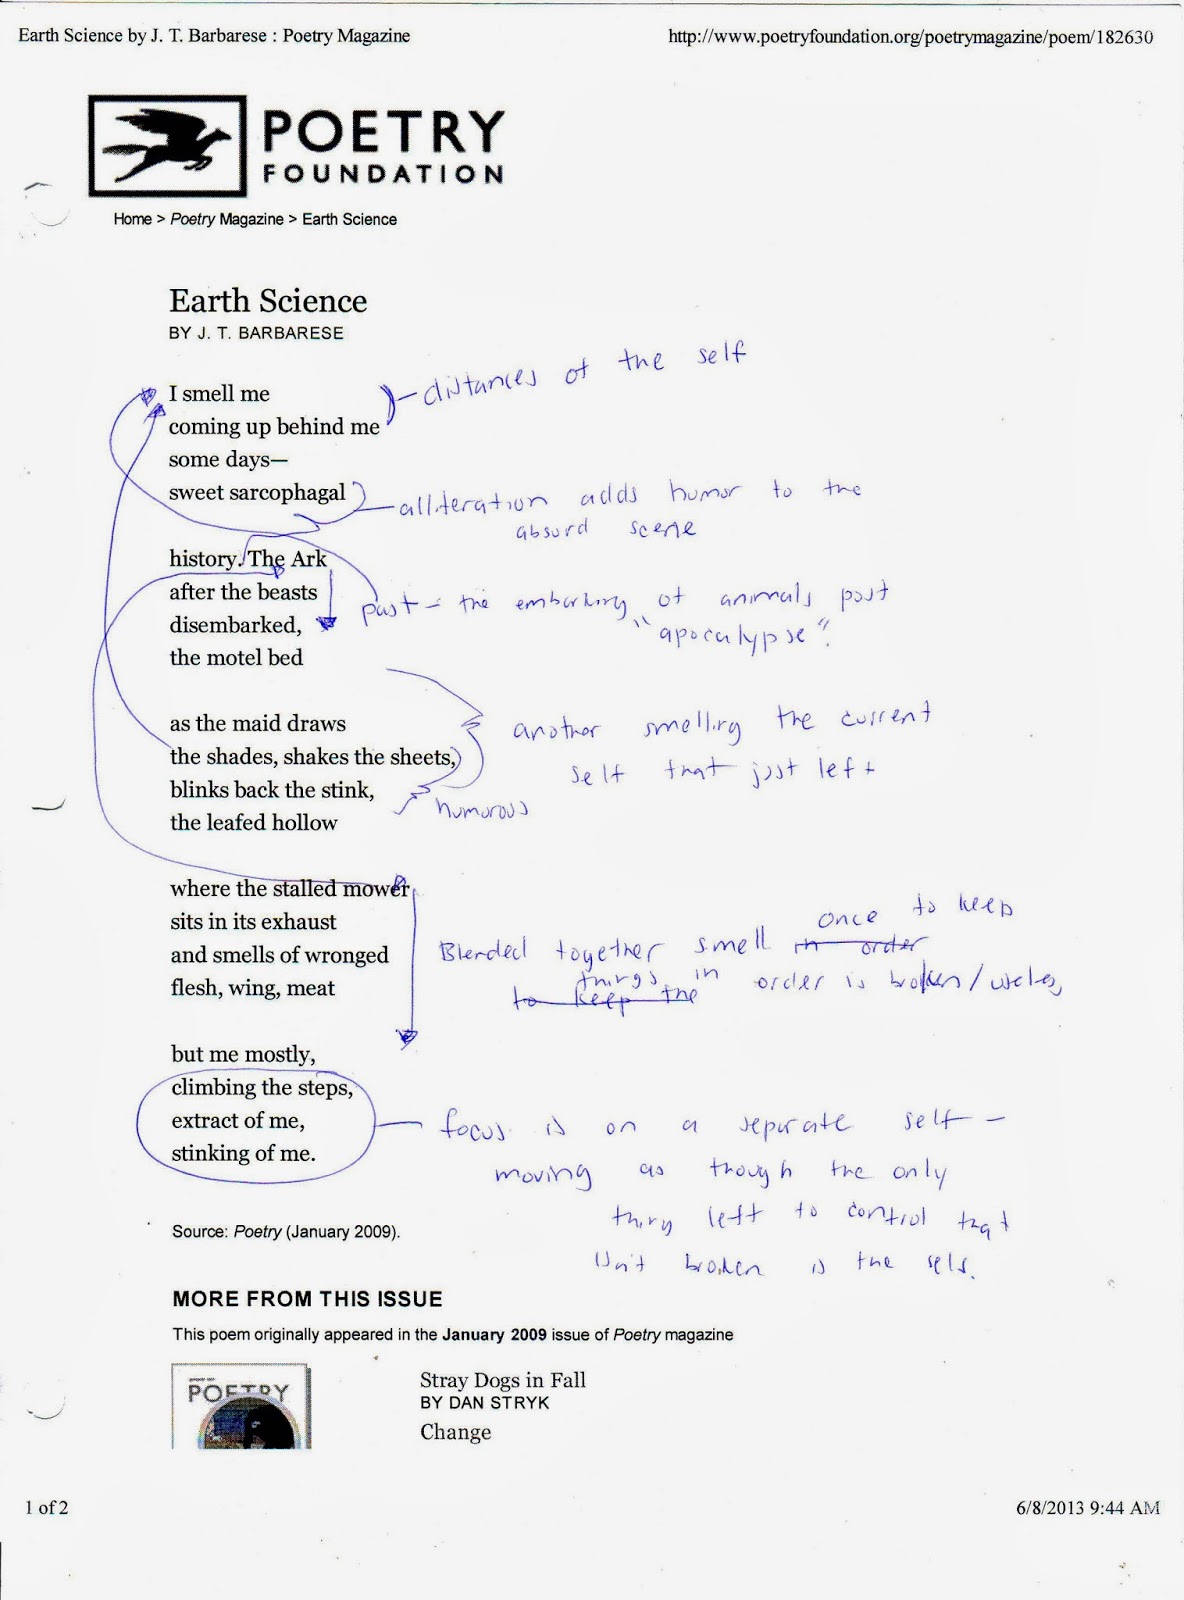 Earth Science by J. T. Barbarese : Poetry Magazine
http://www.poetryfoundation.org/poetrymagazine/poem/182630
POETRY
FOUNDATION
Home > Poetry Magazine > Earth Science
Earth Science
BY J. T. BARBARESE
I smell me
coming up behind me
some days—
sweet sarcophagal
distances of the self
alliteration adds humor to the
absurd scene
history. The Ark
after the beasts
disembarked,
the motel bed
past - the embarking of animals post
"apocalypse".
as the maid draws
the shades, shakes the sheets,
blinks back the stink,
the leafed hollow
another smelling the current
self that just left
humorous
where the stalled mower
sits in its exhaust
and smells of wronged
flesh, wing, meat
once to keep
Blended together smell in order
things in order is broken/useless
to keep the
but me mostly,
climbing the steps,
extract of me,
stinking of me.
focus is on a separate self -
moving as though the only
thing left to control that
isn't broken is the self.
Source: Poetry (January 2009).
MORE FROM THIS ISSUE
This poem originally appeared in the January 2009 issue of Poetry magazine
POETRY
Stray Dogs in Fall
BY DAN STRYK
Change
1 of 2
6/8/2013 9:44 AM